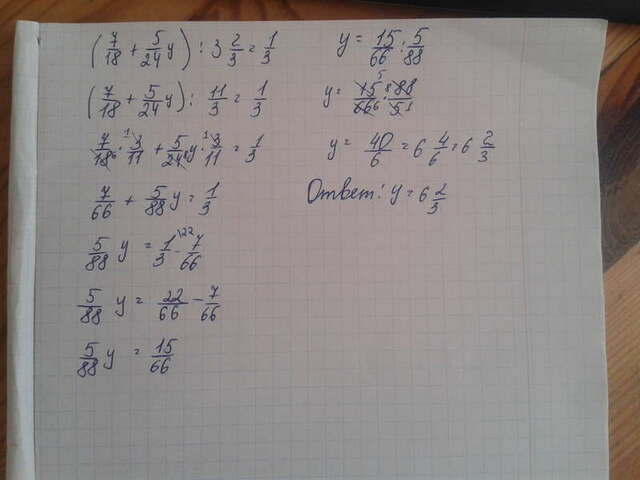 (7/18 + 5/24 y) : 3 2/3 = 1/3
(7/18 + 5/24 y) : 11/3 = 1/3
7/18 6 · 1 3/11 + 5/24 8 y · 1 3/11 = 1/3
7/66 + 5/88 y = 1/3
5/88 y = 1/3 \22 - 7/66
5/88 y = 22/66 - 7/66
5/88 y = 15/66
y = 15/66 : 5/88
y = 15 5/66 6 · 8 88/5 1
y = 40/6 = 6 4/6 = 6 2/3
Ответ: y = 6 2/3